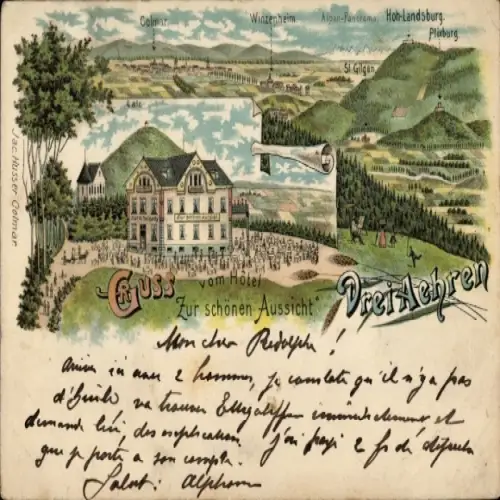 Colmar
Winzenheim
Alpen-Panorama
Hoh-Landsburg
Plixburg
St Gilgen
Galz
Jac. Husser Colmar
Gruss vom Hotel
"Zur schönen Aussicht"
Drei Aehren
Mon cher Rodolphe !
2 hommes, je constate qu'il n'y a pas
d'huile va trouver immédiatement et
demande lui des explications. j'ai payé 2 fs de
que je porte a son compte.
Salut : Alphonse